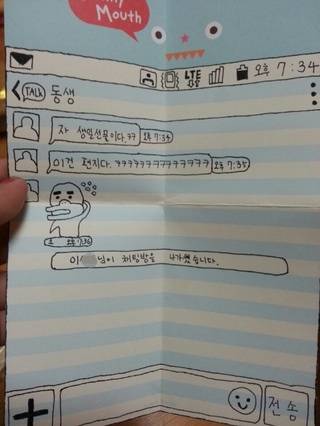 Mouth
LTE 오후 7:34
< TALK 동생
자 생일선물이다.ㅋㅋ 오후 7:34
이건 편지다.ㅋㅋㅋㅋㅋㅋㅋㅋㅋㅋㅋㅋㅋㅋ 오후 7:35
오후 7:36
이 님이 채팅방을 나가셨습니다.
+ 전송